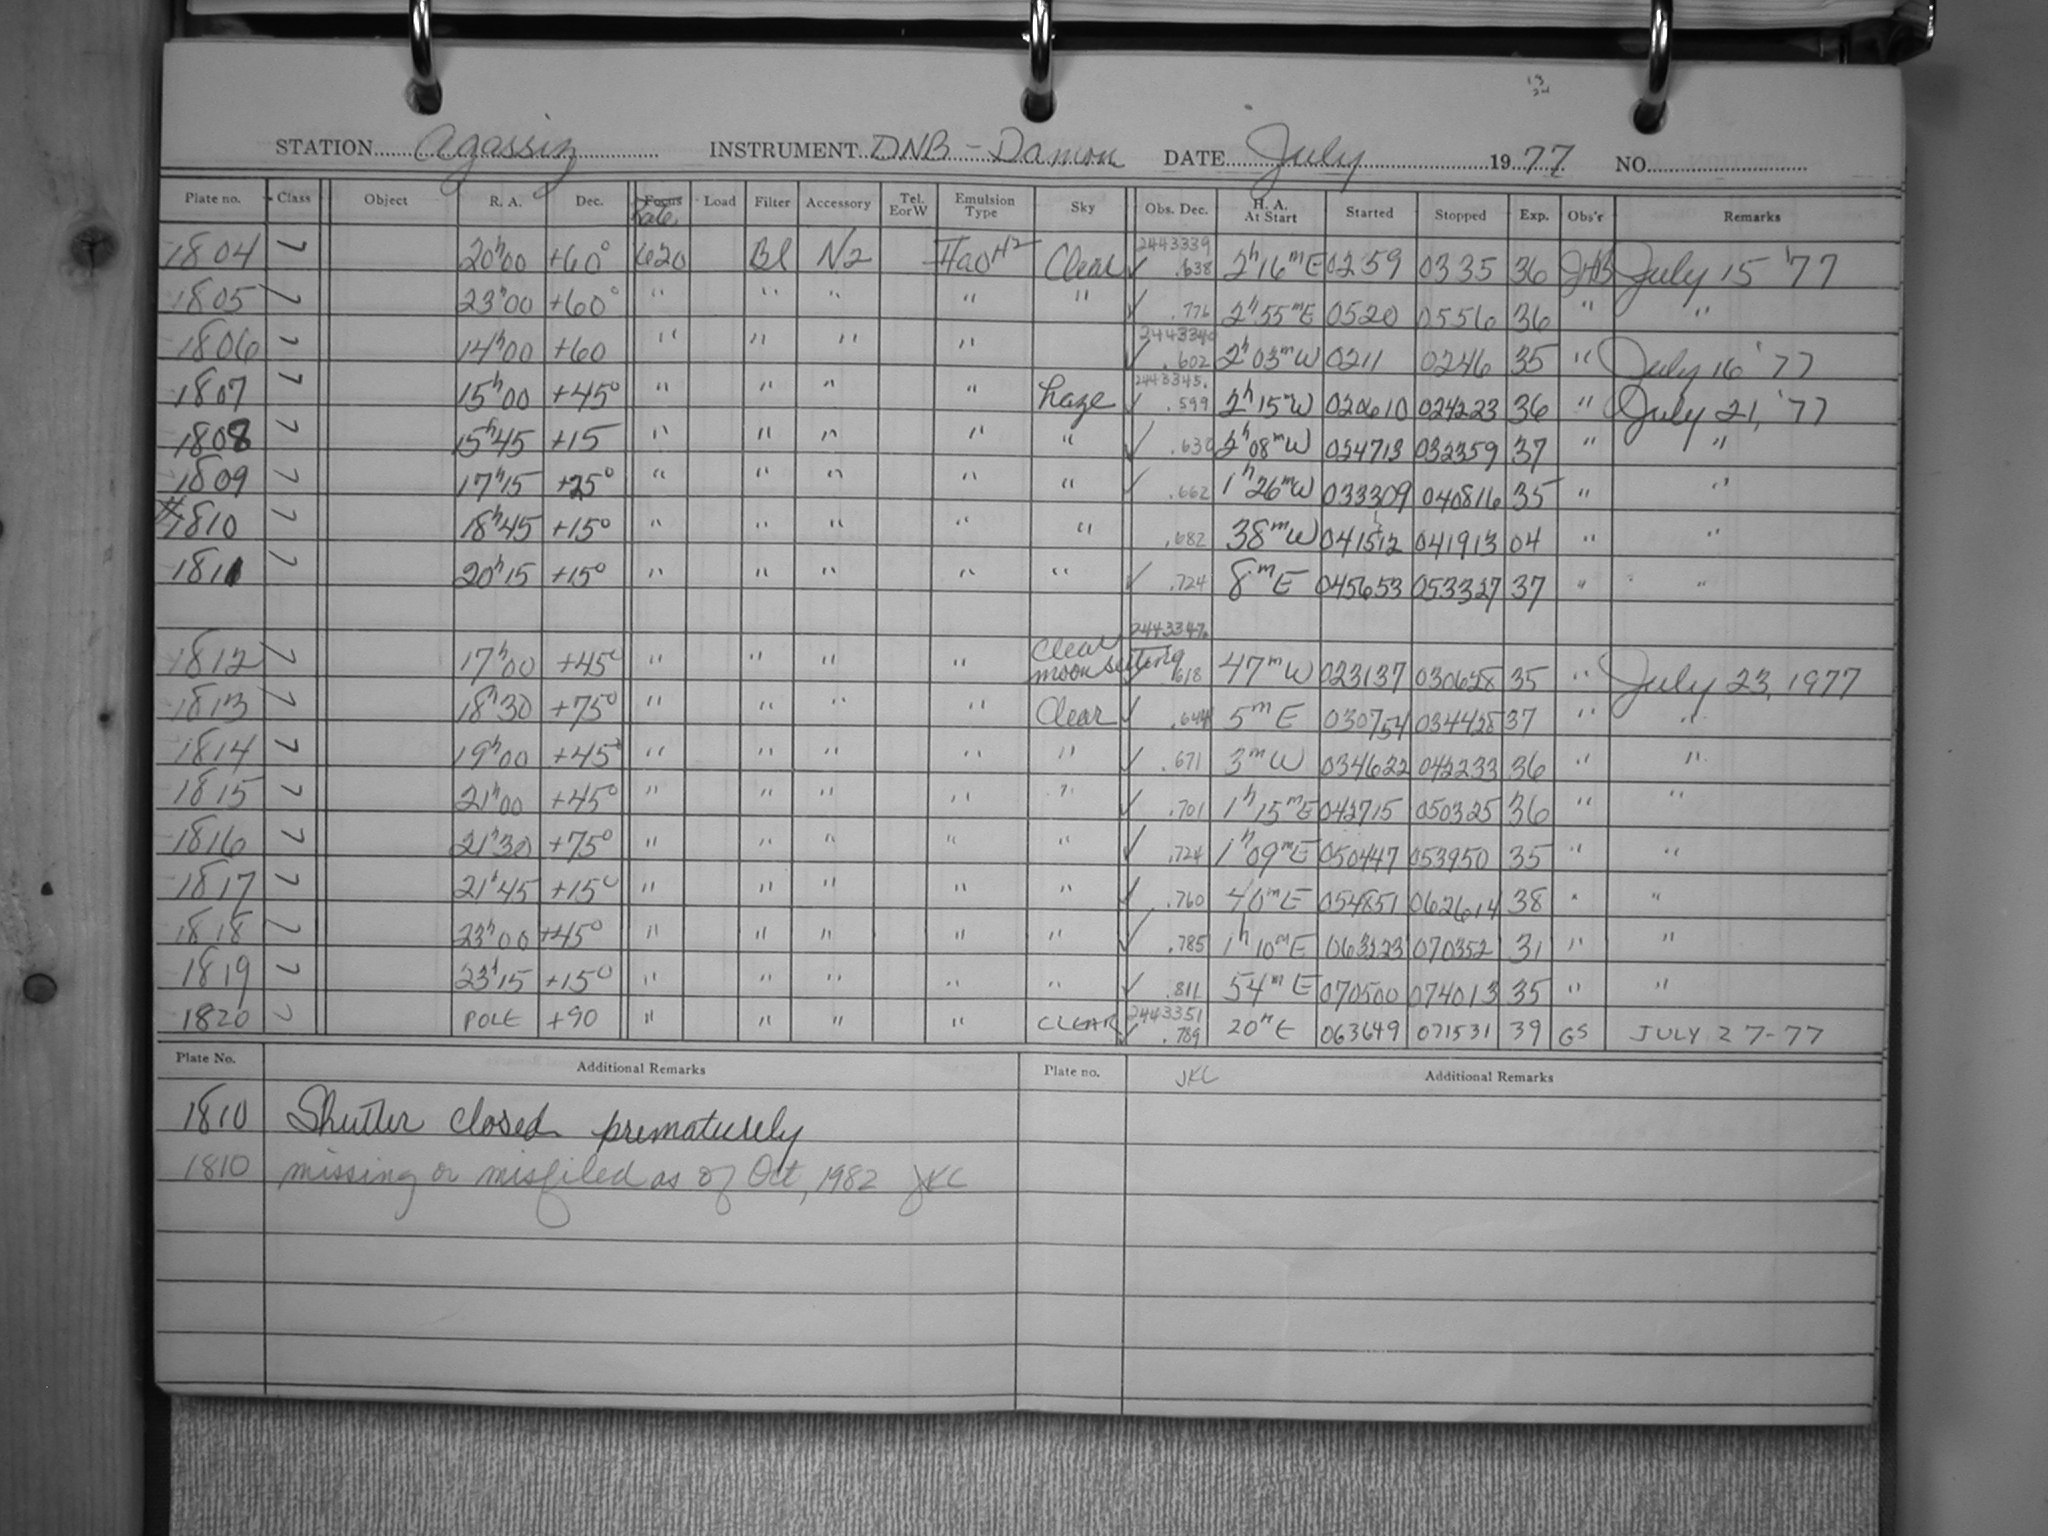 STATION Agassiz INSTRUMENT DNB - Damon DATE July 1977 NO.
Plate no. Class Object R. A. Dec. Focus Rate Load Filter Accessory Tel. E or W Emulsion Type Sky Obs. Dec. H. A. At Start Started Stopped Exp. Obs'r Remarks
1804 7 20h00 +60° 620 Bl N2 IIaO H2 Clear 2443339 .638 2h16mE 0259 0335 36 JHB July 15 '77
1805 7 23h00 +60° " " " " " .776 2h55mE 0520 0556 36 " "
1806 7 14h00 +60 " " " " 2443340 .602 2h03mW 0211 0246 35 " July 16 '77
1807 7 15h00 +45° " " " " haze 2443345. .599 2h15mW 020610 024223 36 " July 21, '77
1808 7 15h45 +15 " " " " " .630 2h08mW 024713 032359 37 " "
1809 7 17h15 +25° " " " " " .662 1h26mW 033309 040816 35 " "
1810 7 18h45 +15° " " " " " .682 38mW 041512 041913 04 " "
1811 7 20h15 +15° " " " " " .724 8mE 045653 053327 37 " "
1812 7 17h00 +45° " " " " Clear moon setting 2443347. .618 47mW 023137 030658 35 " July 23, 1977
1813 7 18h30 +75° " " " " Clear .644 5mE 030754 034428 37 " "
1814 7 19h00 +45° " " " " " .671 3mW 034622 042233 36 " "
1815 7 21h00 +45° " " " " " .701 1h15mE 042715 050325 36 " "
1816 7 21h30 +75° " " " " " .724 1h09mE 050447 053950 35 " "
1817 7 21h45 +15° " " " " " .760 40mE 054851 062614 38 " "
1818 7 23h00 +45° " " " " " .785 1h10mE 063223 070352 31 " "
1819 7 23h15 +15° " " " " " .811 54mE 070500 074013 35 " "
1820 7 POLE +90 " " " " CLEAR 2443351 .789 20mE 063649 071531 39 GS JULY 27-77
Plate No. Additional Remarks Plate no. JKC Additional Remarks
1810 Shutter closed prematurely
1810 missing or misfiled as of Oct, 1982 JKC